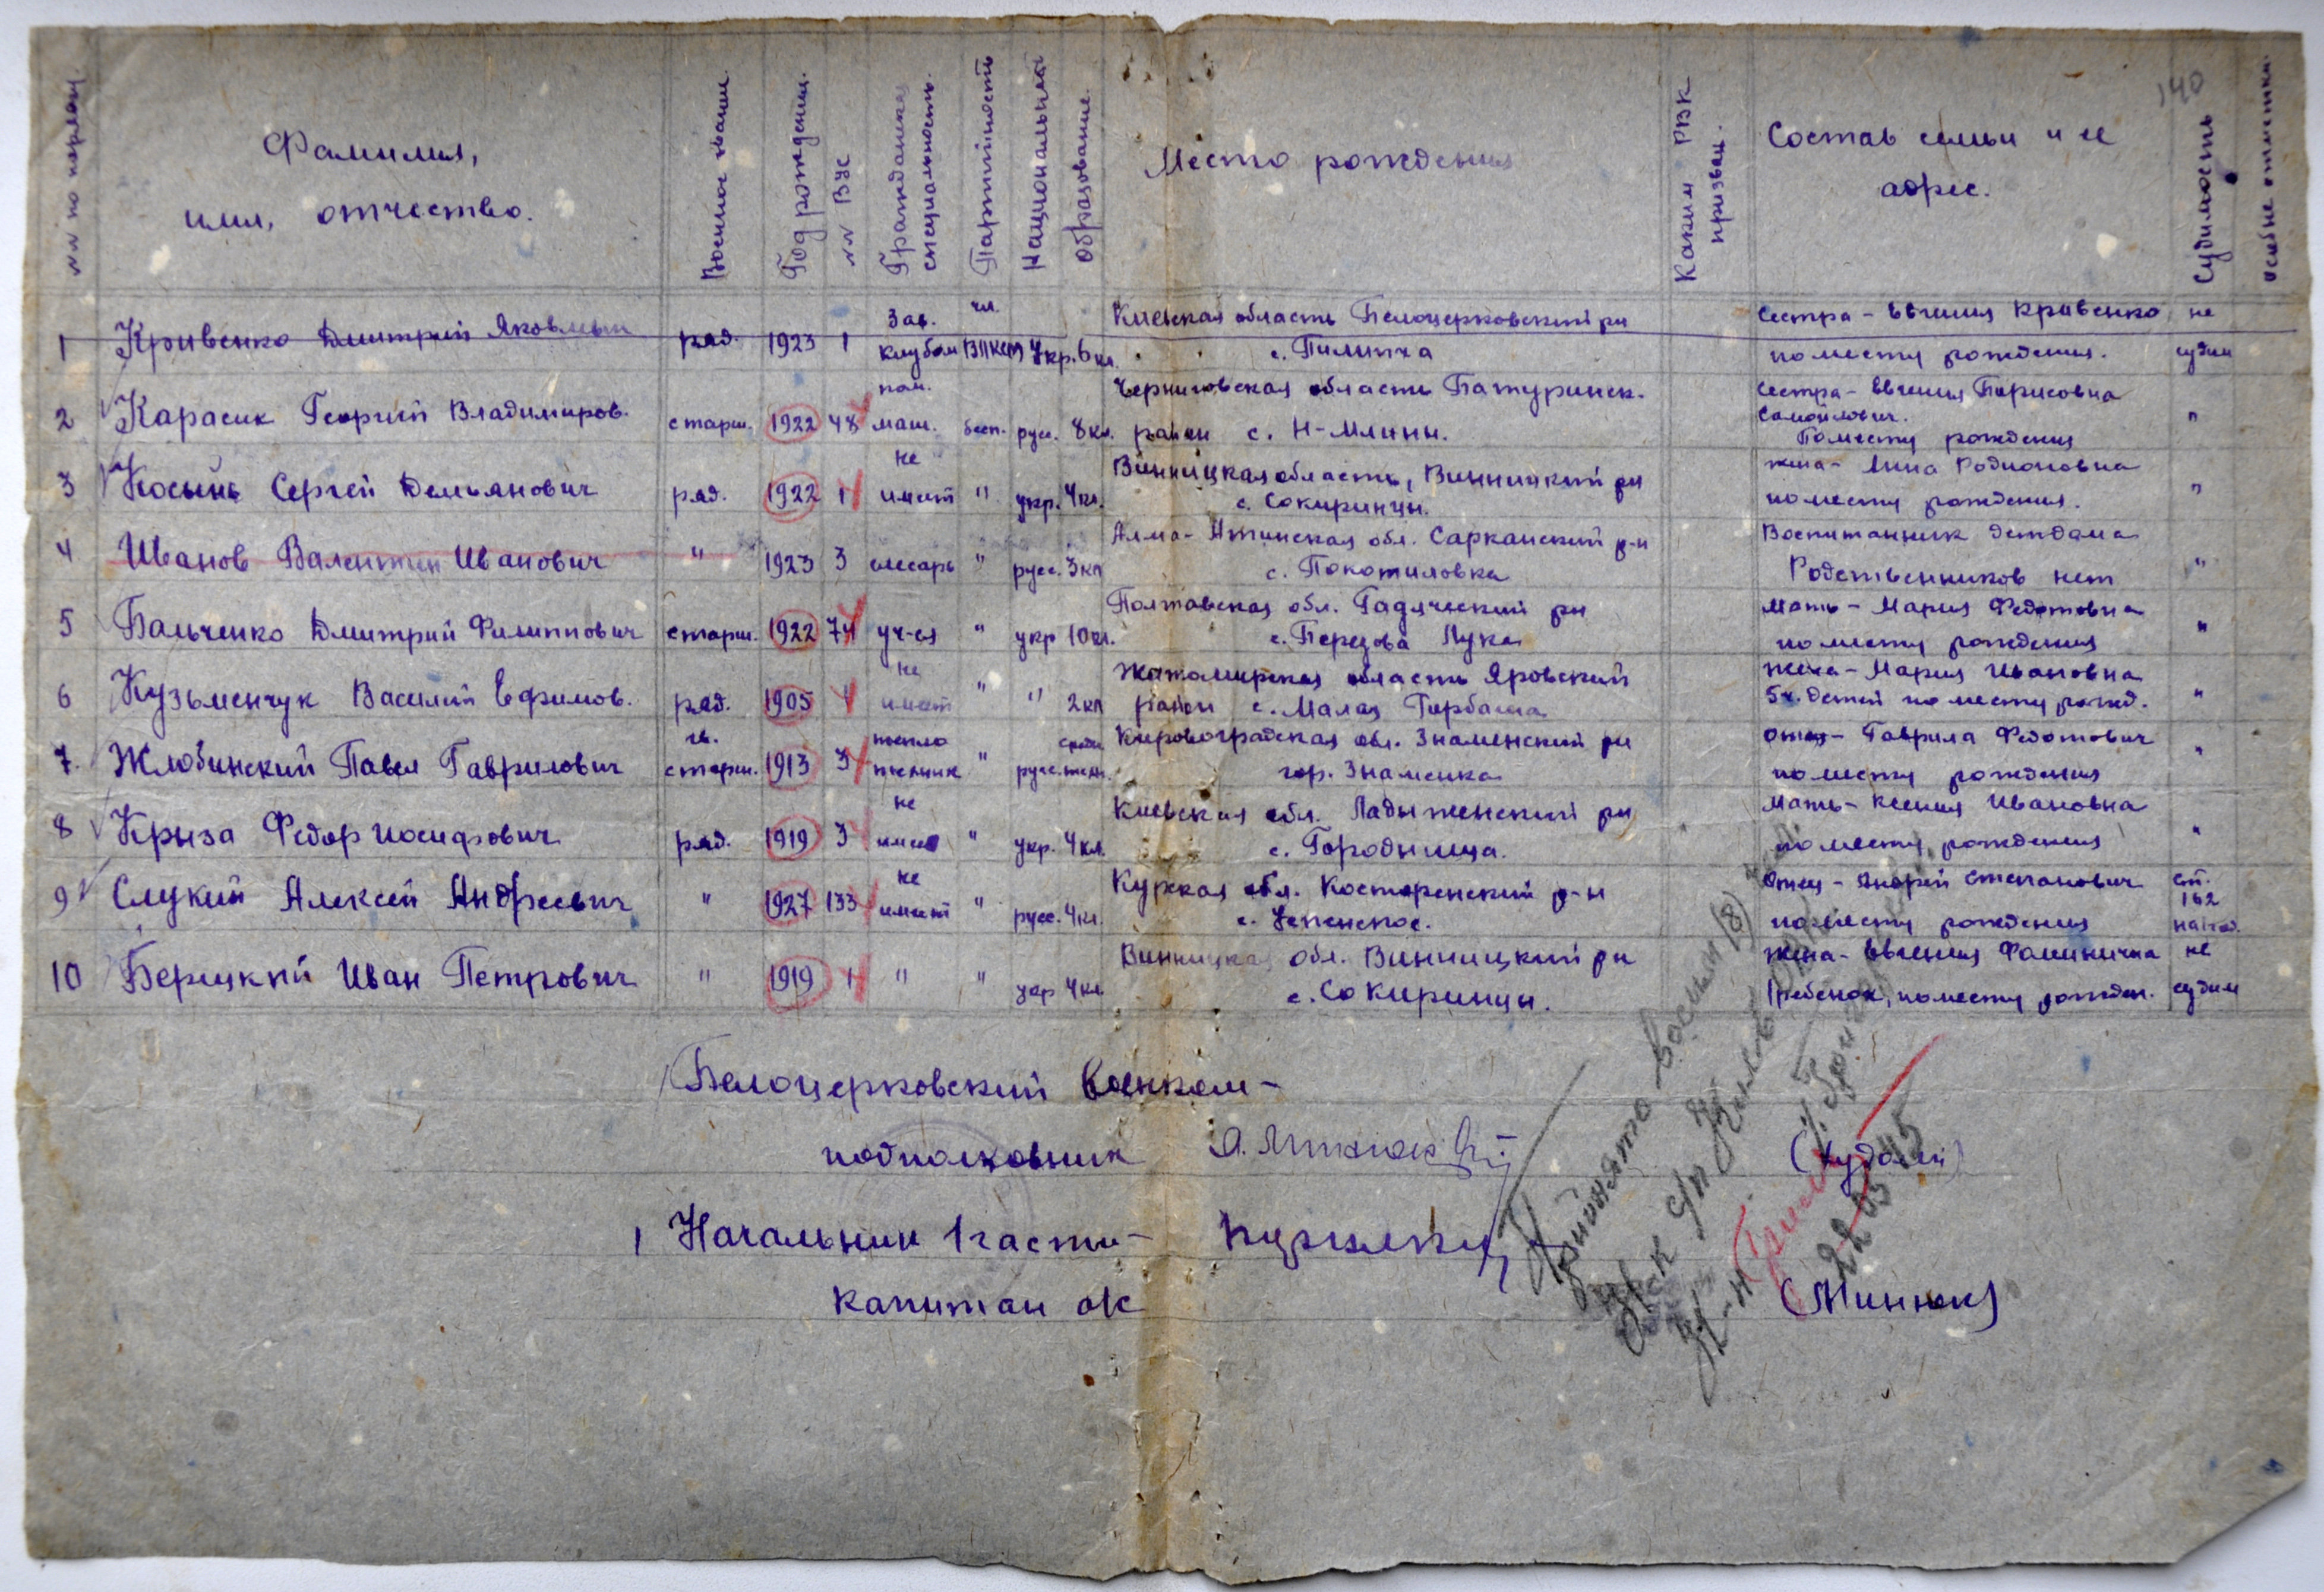 140
№№ по порядку.
Фамилия,
имя, отчество.
Военное звание.
Год рождения.
№№ ВУС
Гражданская
специальность.
Партийность
Национальность
Образование.
Место рождения
Каким РВК
призван.
Состав семьи и ее
адрес.
Судимость
Особые отметки.
1 Кривенко Дмитрий Яковлевич ряд. 1923 1 Зав. клубом чл. ВЛКСМ Укр. 6 кл. Киевская область Белоцерковский рн с. Пилипча Сестра - Евгения Кривенко по месту рождения. не судим
2 Карасик Георгий Владимиров. старш. 1922 48 пом. маш. бесп. русс. 8 кл. Черниговская область Батуринск. район с. Н-Млины. Сестра - Евгения Борисовна Самойлович. По месту рождения "
3 Косынь Сергей Демьянович ряд. 1922 1 не имеет " укр. 4 кл. Винницкая область, Винницкий рн с. Сокиринцы. жена - Анна Родионовна по месту рождения. "
4 Иванов Валентин Иванович " 1923 3 слесарь " русс. 3 кл Алма-Атинская обл. Сарканский р-н с. Покотиловка Воспитанник детдома Родственников нет "
5 Бальченко Дмитрий Филиппович старш. 1922 74 уч-ся " укр 10 кл. Полтавская обл. Гадячский рн с. Березова Лука Мать - Мария Федотовна по месту рождения "
6 Кузьменчук Василий Ефимов. ряд. 1905 1 не имеет " " 2 кл Житомирская область Яровский район с. Малая Горбаша Жена - Мария Ивановна 5 ч. детей по месту рожд. "
7. Жлобинский Павел Гаврилович гв. старш. 1913 3 тепло техник " русс. средн. техн. Кировоградская обл. Знаменский рн гор. Знаменка Отец - Гаврила Федотович по месту рождения "
8 Крыза Федор Иосифович ряд. 1919 3 не имее " укр. 4 кл. Киевская обл. Ладыженский рн с. Городница. Мать - Ксения Ивановна по месту рождения "
9 Слукин Алексей Андреевич " 1927 133 не имеет " русс. 4 кл. Курская обл. Касторенский р-н с. Успенское. Отец - Андрей Степанович по месту рождения ст. 162 на 1 год.
10 Берецкий Иван Петрович " 1919 1 " " укр 4 кл. Винницкая обл. Винницкий рн с. Сокиринцы. Жена - Евгения Фоминична 1 ребенок, по месту рожден. не судим
Белоцерковский военком -
подполковник (Худолей)
Начальник 1 части -
капитан а/с (Минюк)
Принято восемь (8) чел.
22 03 45